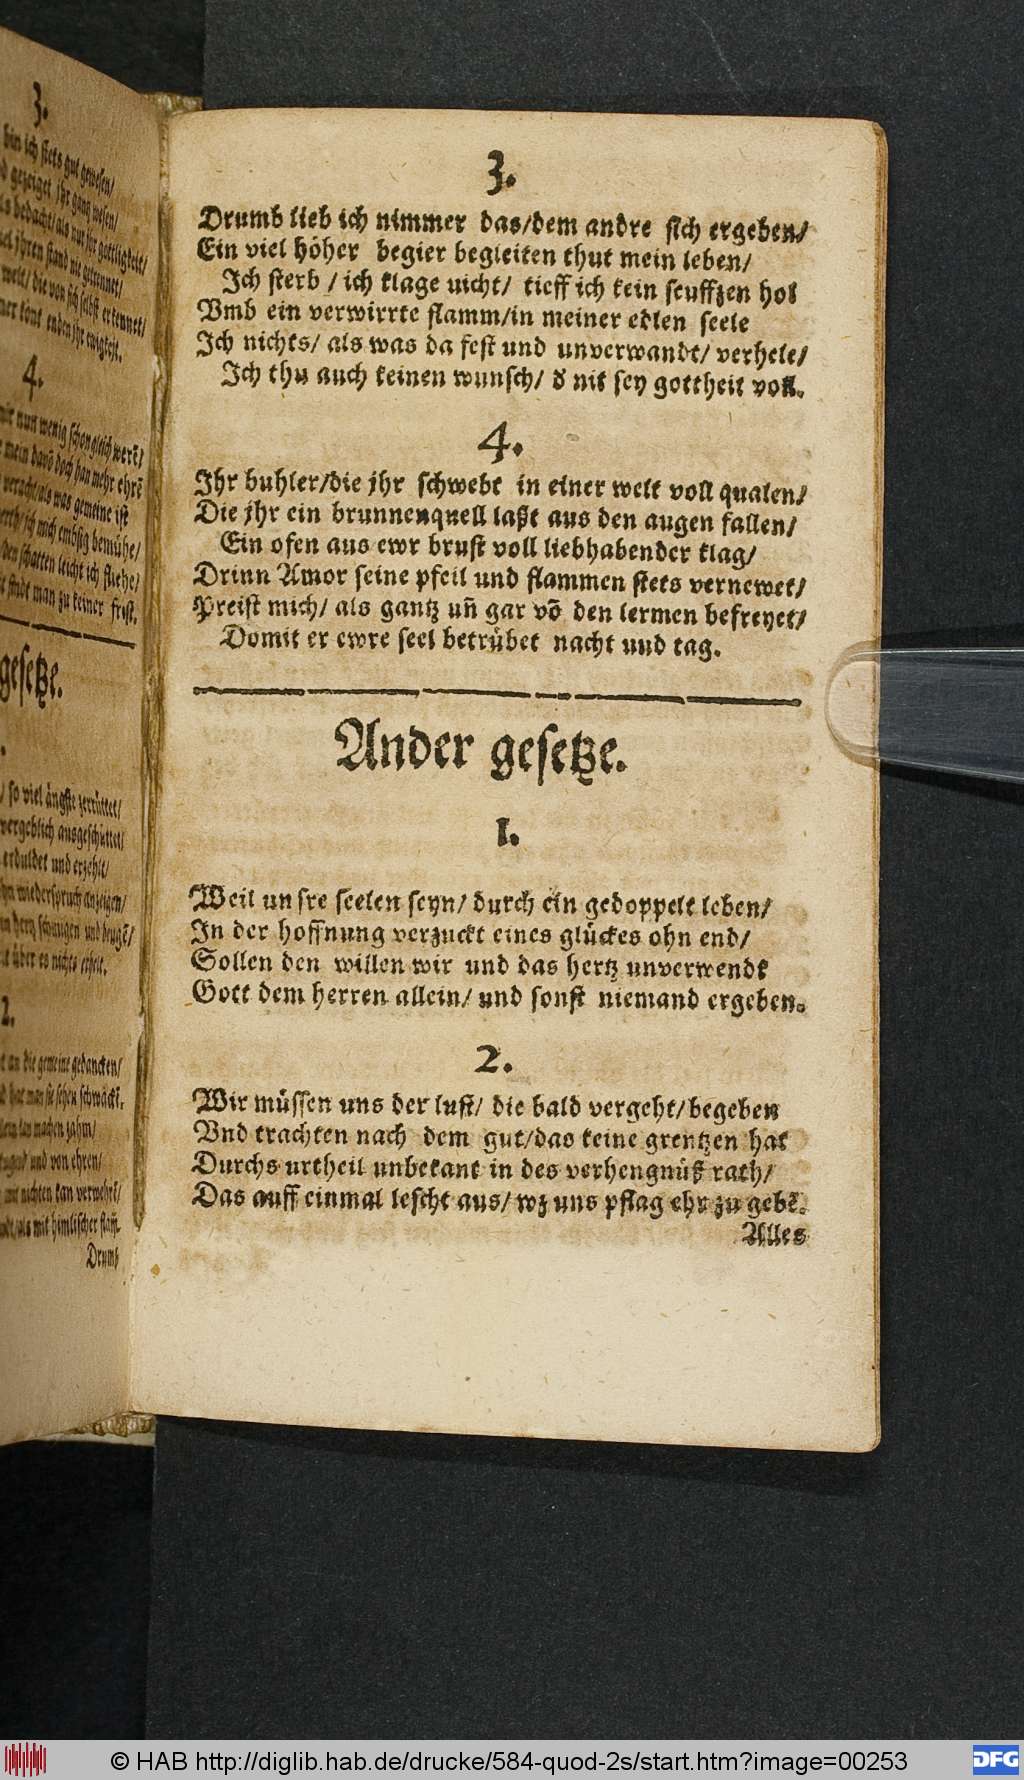 3.
bin ich stets gut gewesen/
gezeiget jhr gantz wesen/
bedacht/als nur jhr gattligkeit/
jhren stand nie getrennet/
welt/ die von sich selbst erkennet/
enden jhr ewigkeit.
4.
nun wenig schon gleich
mein davō doch han mehr ehrē
veracht/als was gemeine ist
ich mich embsig bemühe/
den schatten leicht ich fliehe/
findt man zu keiner frist.
gesetze.
so viel ängste zerrüttet/
vergeblich ausgeschüttet/
erduldet und erzehlt/
wiederspruch anzeigen/
hertz schwingen und beugē/
über es nichts erhelt.
2.
an die gemeine gedancken/
hat man sie sehen schwäckē.
machen zahm/
tugend und von ehren/
mit nichten kan verwehrē/
als mit himlischer flam̄.
Drumb
3.
Drumb lieb ich nimmer das/dem andre sich ergeben/
Ein viel höher begier begleiten thut mein leben/
Ich sterb / ich klage nicht/ tieff ich kein seuffzen hol
Vmb ein verwirrte flamm/in meiner edlen seele
Ich nichts/ als was da fest und unverwandt/ verhele/
Ich thu auch keinen wunsch/ d nit sey gottheit voll.
4.
Ihr buhler/die jhr schwebt in einer welt voll qualen/
Die jhr ein brunnenquell laßt aus den augen fallen/
Ein ofen aus ewr brust voll liebhabender klag/
Drinn Amor seine pfeil und flammen stets vernewet/
Preist mich/ als gantz uñ gar vō den lermen befreyet/
Domit er ewre seel betrübet nacht und tag.
Ander gesetze.
1.
Weil unsre seelen seyn/ durch ein gedoppelt leben/
In der hoffnung verzuckt eines glückes ohn end/
Sollen den willen wir und das hertz unverwendt
Gott dem herren allein/ und sonst niemand ergeben.
2.
Wir müssen uns der lust/ die bald vergeht/begeben
Vnd trachten nach dem gut/das keine grentzen hat
Durchs urtheil unbekant in des verhengnüß rath/
Das auff einmal lescht aus/ wz uns pflag ehr zu gebē.
Alles
© HAB http://diglib.hab.de/drucke/584-quod-2s/start.htm?image=00253
DFG